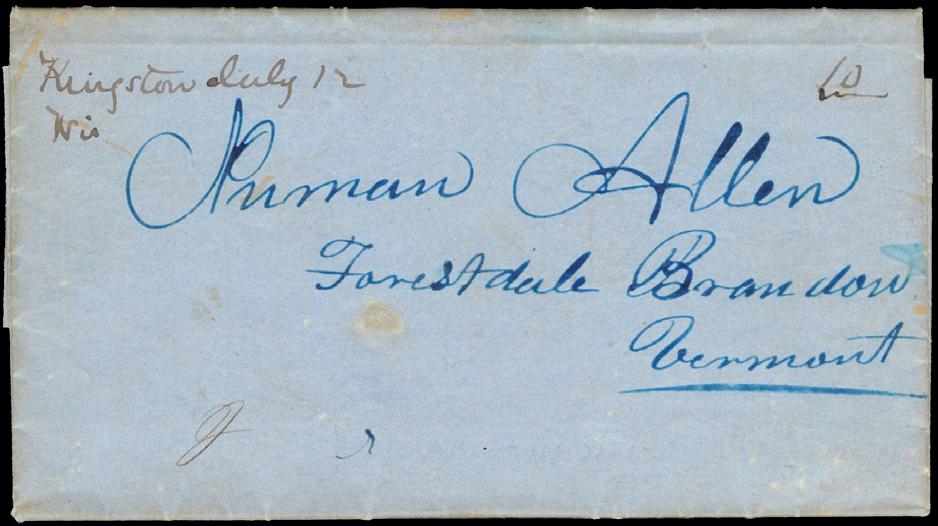 Kingston July 12
Wis
10
Numan Allen
Forestdale Brandon
Vermont